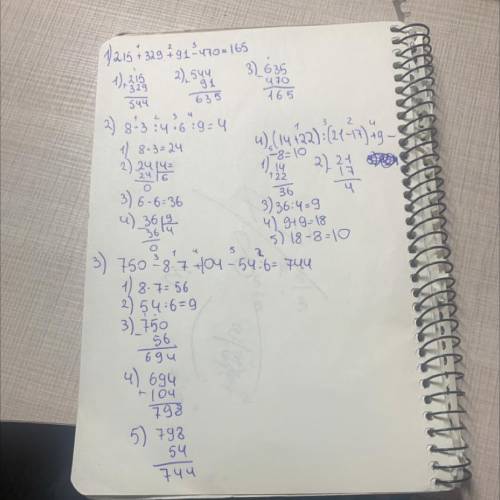 1) 215 + 329 + 91 - 470 = 165
1) 215
+ 329
544
2) 544
91
635
3) 635
- 470
165
2) 8 · 3 : 4 · 6 : 9 = 4
1) 8 · 3 = 24
2) 24 | 4
24 | 6
0
3) 6 · 6 = 36
4) 36 | 9
36 | 4
0
4) (14 + 22) : (21 - 17) + 9 -
- 8 = 10
1) 14
+ 22
36
2) 21
- 17
4
3) 36 : 4 = 9
4) 9 + 9 = 18
5) 18 - 8 = 10
3) 750 - 8 · 7 + 104 - 54 : 6 = 744
1) 8 · 7 = 56
2) 54 : 6 = 9
3) 750
- 56
694
4) 694
+ 104
798
5) 798
54
744